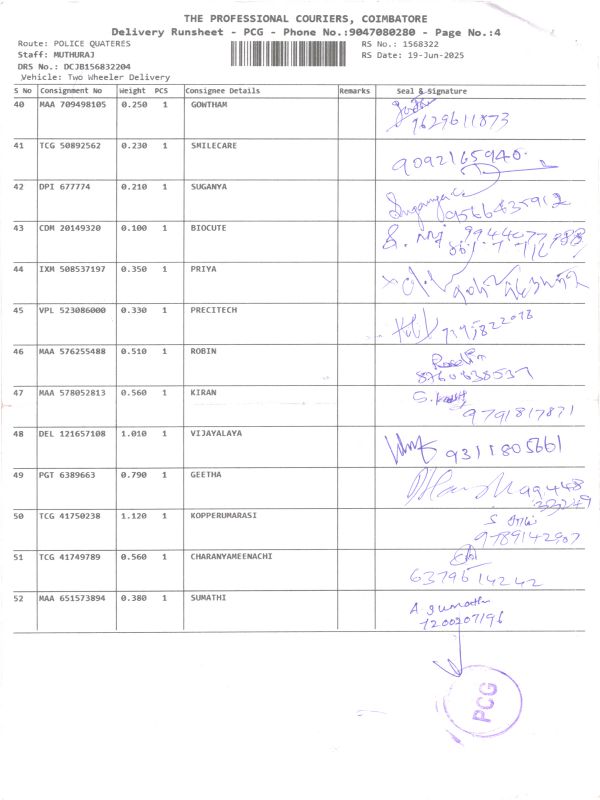 THE PROFESSIONAL COURIERS, COIMBATORE
Delivery Runsheet - PCG - Phone No.:9047080280 - Page No.:4
Route: POLICE QUATERES RS No.: 1568322
Staff: MUTHURAJ RS Date: 19-Jun-2025
DRS No.: DCJB156832204
Vehicle: Two Wheeler Delivery
S No Consignment No Weight PCS Consignee Details Remarks Seal & Signature
40 MAA 709498105 0.250 1 GOWTHAM
7629611873
41 TCG 50892562 0.230 1 SMILECARE
9092165940
42 DPI 677774 0.210 1 SUGANYA
Suganya
9566435912
43 CDM 20149320 0.100 1 BIOCUTE
44 IXM 508537197 0.350 1 PRIYA
45 VPL 523086000 0.330 1 PRECITECH
46 MAA 576255488 0.510 1 ROBIN
8760838537
47 MAA 578052813 0.560 1 KIRAN
9791817871
48 DEL 121657108 1.010 1 VIJAYALAYA
9311805661
49 PGT 6389663 0.790 1 GEETHA
50 TCG 41750238 1.120 1 KOPPERUMARASI
9789142907
51 TCG 41749789 0.560 1 CHARANYAMEENACHI
6379614242
52 MAA 651573894 0.380 1 SUMATHI
A Sumathi
7200207196
PCG